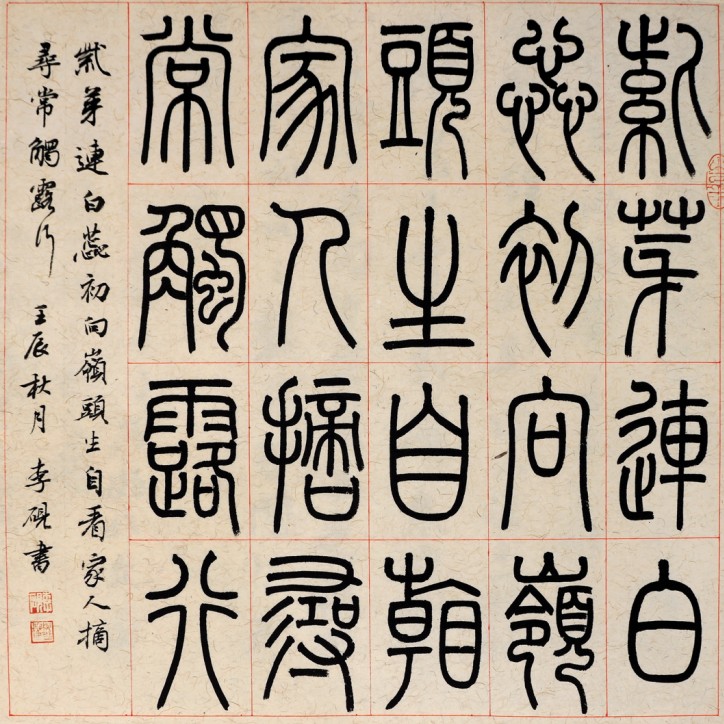 紫芽連白
蕊初向嶺
頭生自看
家人摘尋
常觸露行
紫芽連白蕊初向嶺頭生自看家人摘
尋常觸露行 壬辰秋月 李硯書